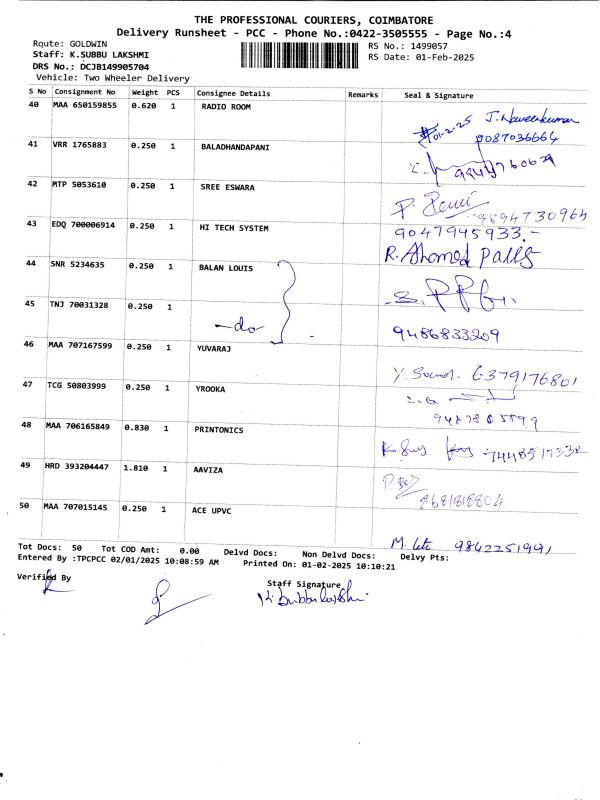 THE PROFESSIONAL COURIERS, COIMBATORE
Delivery Runsheet - PCC - Phone No.:0422-3505555 - Page No.:4
Route: GOLDWIN
RS No.: 1499057
Staff: K.SUBBU LAKSHMI
RS Date: 01-Feb-2025
DRS No.: DCJB149905704
Vehicle: Two Wheeler Delivery
S No Consignment No Weight PCS Consignee Details Remarks Seal & Signature
40 MAA 650159855 0.620 1 RADIO ROOM
01-2-25 J. Naveenkumar
9087036664
41 VRR 1765883 0.250 1 BALADHANDAPANI
42 MTP 5053610 0.250 1 SREE ESWARA
9894730964
43 EDQ 700006914 0.250 1 HI TECH SYSTEM 9047945933.-
R. Ahamed
44 SNR 5234635 0.250 1 BALAN LOUIS
45 TNJ 70031328 0.250 1
-do
9486833209
46 MAA 707167599 0.250 1 YUVARAJ
6379176801
47 TCG 50803999 0.250 1 YROOKA
48 MAA 706165849 0.830 1 PRINTONICS
7448517338
49 HRD 393204447 1.810 1 AAVIZA
8681818804
50 MAA 707015145 0.250 1 ACE UPVC
9842251991
Tot Docs: 50 Tot COD Amt: 0.00 Delvd Docs: Non Delvd Docs: Delvy Pts:
Entered By :TPCPCC 02/01/2025 10:08:59 AM Printed On: 01-02-2025 10:10:21
Verified By
Staff Signature